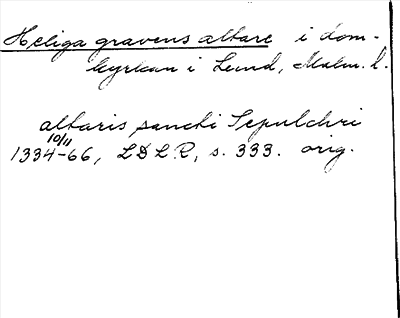 Heliga gravens altare i dom-
kyrkan i Lund, Malm. l.
altaris sancti Sepulchri
10/11
1334-66, LDLR, s. 333. orig.